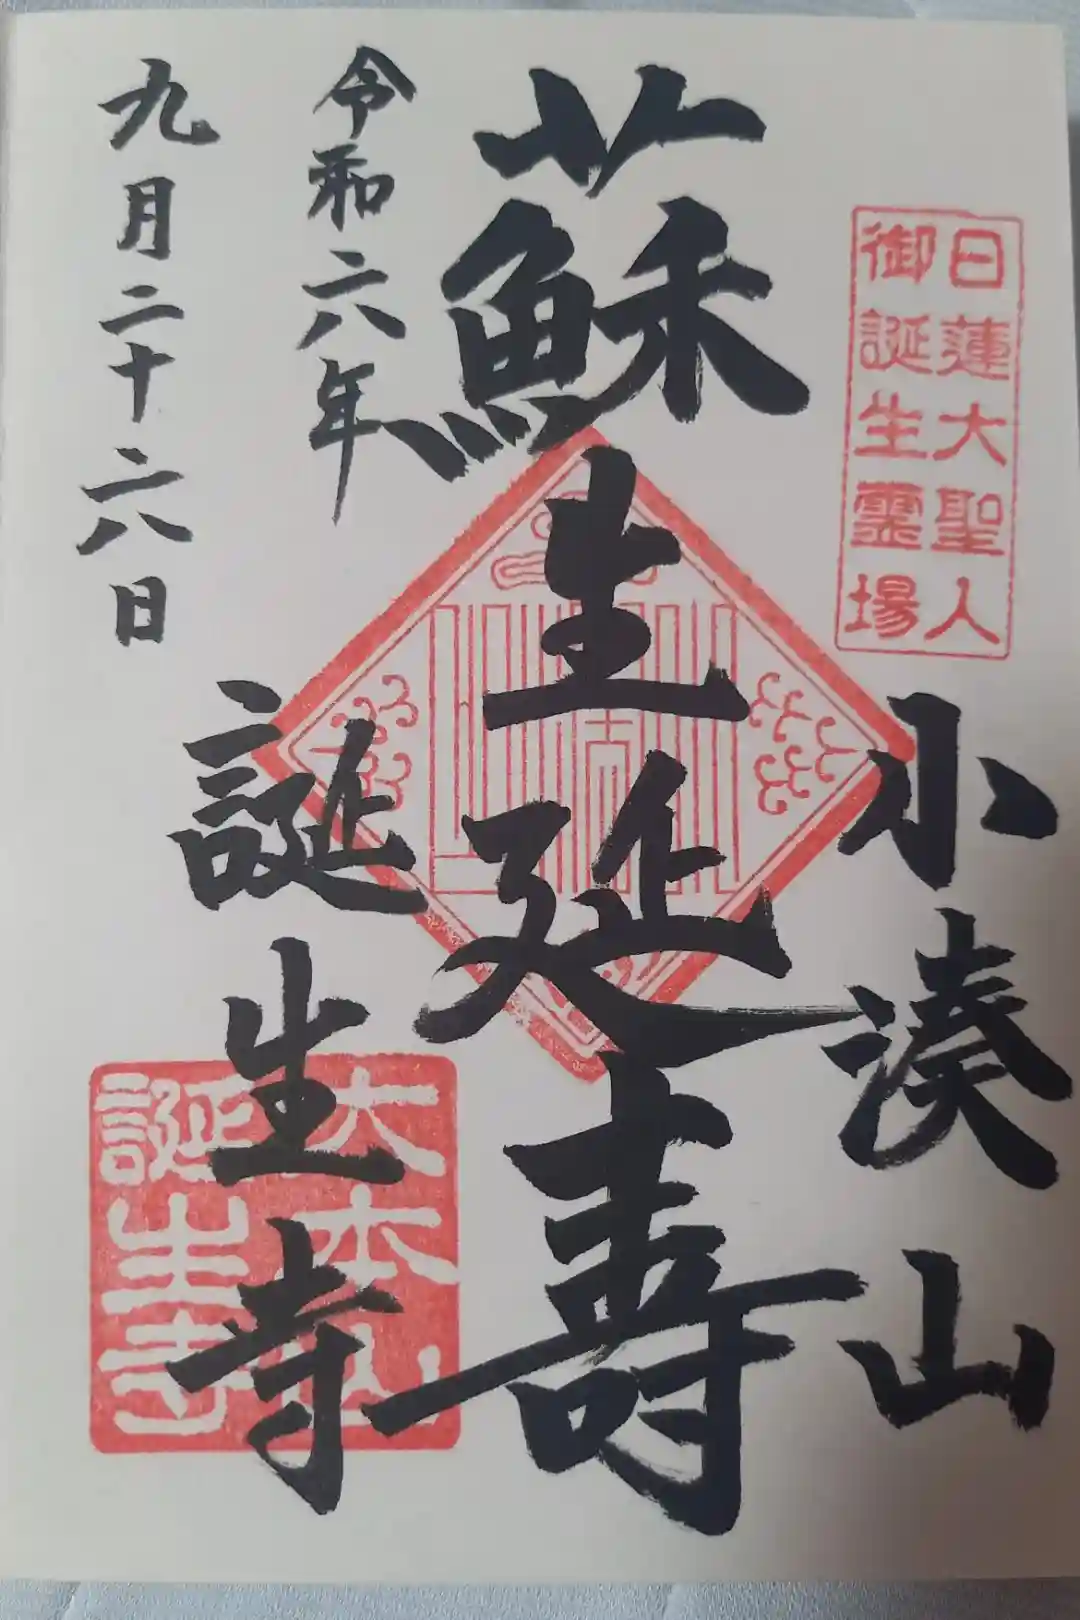 日蓮大聖人
御誕生霊場
小湊山
蘇生延壽
令和六年
九月二十六日
誕生寺
大本山
誕生寺